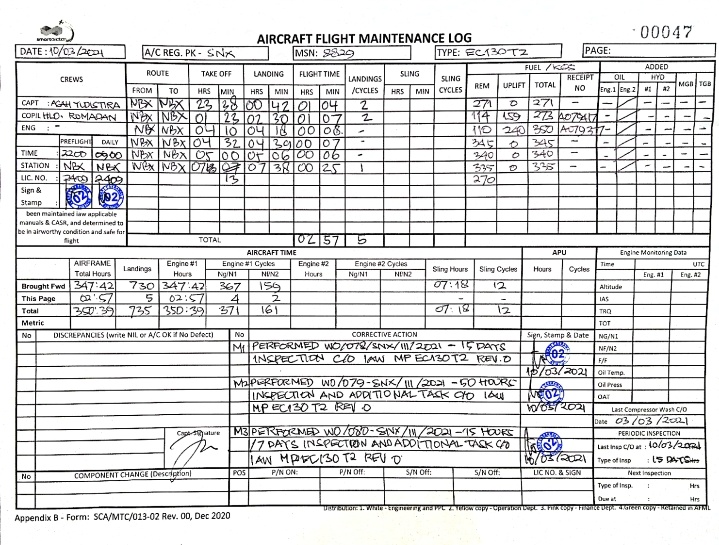 smartaviation
AIRCRAFT FLIGHT MAINTENANCE LOG
00047
DATE: 10/03/2021 A/C REG. PK - SNX MSN: 8829 TYPE: EC130T2 PAGE:
CREWS ROUTE TAKE OFF LANDING FLIGHT TIME LANDINGS /CYCLES SLING SLING CYCLES FUEL / ADDED
REM UPLIFT TOTAL RECEIPT NO OIL HYD MGB TGB
FROM TO HRS MIN HRS MIN HRS MIN HRS MIN Eng.1 Eng.2 #1 #2
CAPT : NBX NBX 23 38 00 42 01 04 2 271 0 271 - - - - - -
COPILOT: NBX NBX 01 23 02 30 01 07 2 114 159 273 A079417 - - - - -
ENG : - NBX NBX 04 10 04 18 00 08 - 110 240 350 - - - - -
PREFLIGHT DAILY NBX NBX 04 32 04 39 00 07 - 345 0 345 - - - - - -
TIME : 2200 0900 NBX NBX 05 00 05 06 00 06 - 340 0 340 - - - - - -
STATION : NBX NBX NBX NBX 07 13 07 38 00 25 1 335 0 335 - - - - - -
LIC. NO. : 2409 2409 270
Sign & Stamp : 02 02
been maintained iaw applicable
manuals & CASR, and determined to
be in airworthy condition and safe for
flight
TOTAL 02 57 5
AIRCRAFT TIME APU Engine Monitoring Data
AIRFRAME Total Hours Landings Engine #1 Hours Engine #1 Cycles Ng/N1 Nf/N2 Engine #2 Hours Engine #2 Cycles Ng/N1 Nf/N2 Sling Hours Sling Cycles Hours Cycles
Time : UTC
Eng. #1 Eng. #2
Brought Fwd 347:42 730 347:42 367 159 07:18 12 Altitude
This Page 02:57 5 02:57 4 2 - - IAS
Total 350:39 735 350:39 371 161 07:18 12 TRQ
Metric TOT
No DISCREPANCIES (write NIL or A/C OK if No Defect) No CORRECTIVE ACTION Sign, Stamp & Date NG/N1
M1 PERFORMED WO/078/SNX/III/2021 - 15 DAYS NF/N2
INSPECTION C/O IAW MP EC130T2 REV.0 02 F/F
10/03/2021 Oil Temp.
M2 PERFORMED WO/079-SNX/III/2021 - 50 HOURS Oil Press
INSPECTION AND ADDITIONAL TASK C/O IAW 02 OAT
MP EC130 T2 REV 0 10/03/2021 Last Compressor Wash C/O
Date 03/03/2021
Capt. Signature M3 PERFORMED WO/080-SNX/III/2021 - 15 HOURS PERIODIC INSPECTION
/7 DAYS INSPECTION AND ADDITIONAL TASK C/O 02 Last Insp C/O at : 10/03/2021
IAW MP EC130 T2 REV 0 10/03/2021 Type of Insp : 15 DAYS
No COMPONENT CHANGE (Description) POS P/N ON: P/N Off: S/N Off: S/N Off: LIC NO. & SIGN Next Inspection
Type of Insp. : Hrs
Due at : Hrs
Distribution: 1. White - Engineering and PPC 2. Yellow copy - Operation Dept. 3. Pink copy - Finance Dept. 4.Green copy - Retained in AFML
Appendix B - Form: SCA/MTC/013-02 Rev. 00, Dec 2020